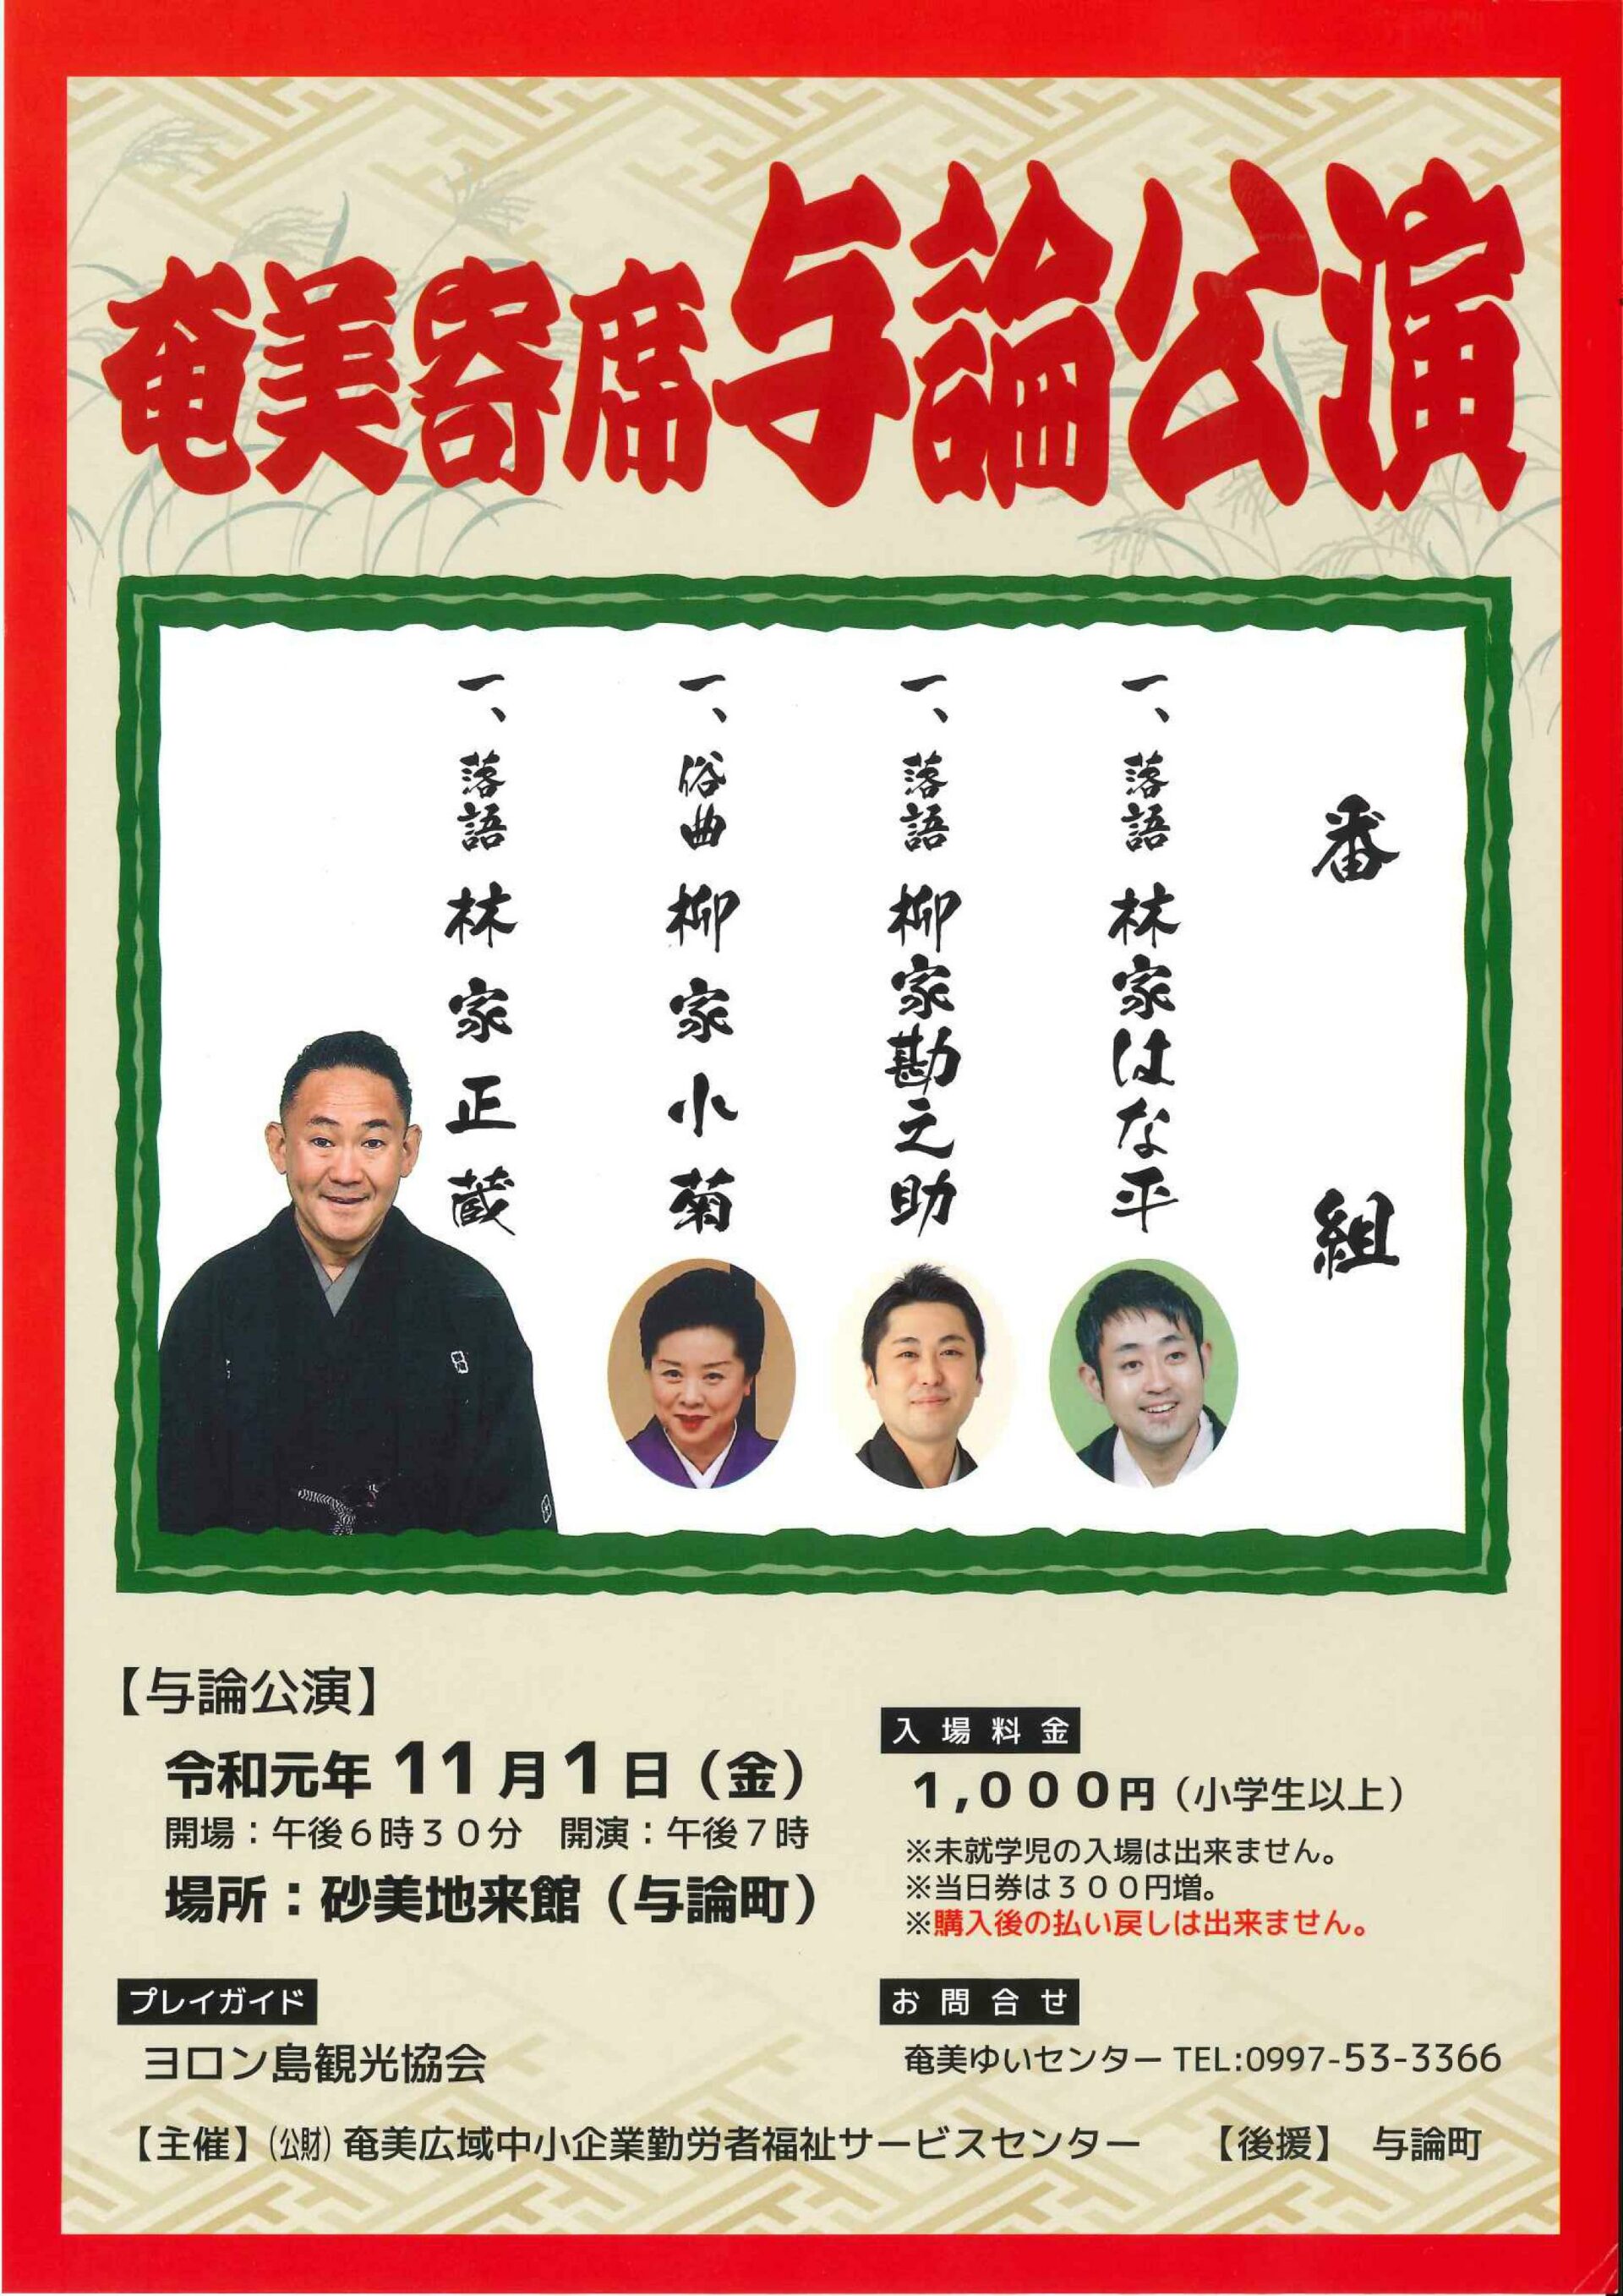 奄美寄席与論公演
番組
一、落語 林家はな平
一、落語 柳家勘之助
一、俗曲 柳家小菊
一、落語 林家正蔵
【与論公演】
令和元年 11月1日（金）
開場：午後6時30分　開演：午後7時
場所：砂美地来館（与論町）
入場料金
1,000円（小学生以上）
※未就学児の入場は出来ません。
※当日券は300円増。
※購入後の払い戻しは出来ません。
プレイガイド
ヨロン島観光協会
お問合せ
奄美ゆいセンター TEL:0997-53-3366
【主催】(公財) 奄美広域中小企業勤労者福祉サービスセンター　【後援】 与論町